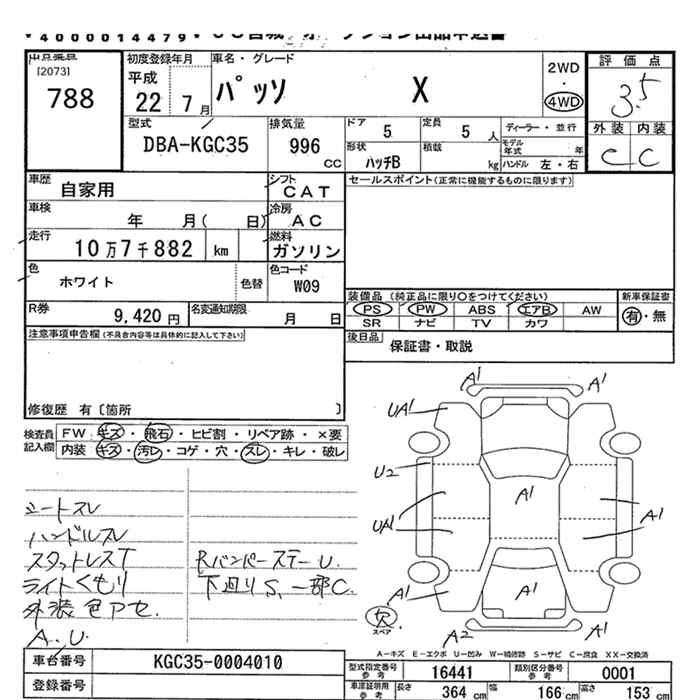 4000014479
出品番号
[2073]
788
初度登録年月
平成
22 7月
車名・グレード
パッソ X
2WD
・
4WD
評価点
3.5
外装 内装
C C
型式
DBA-KGC35
排気量
996
cc
ドア 5
定員 5 人
ディーラー・並行
モデル年式 年
形状 ハッチB
積載 kg
ハンドル 左・右
車歴
自家用
シフト
CAT
セールスポイント(正常に機能するものに限ります)
車検
年 月( 日)
冷房
AC
走行
10万7千882 km
燃料
ガソリン
色
ホワイト
色替
色コード
W09
R券
9,420円
名変通知期限
月 日
装備品 (純正品に限り○をつけてください)
新車保証書
PS PW ABS エアB AW
有・無
SR ナビ TV カワ
後日品
保証書・取説
注意事項申告欄(不具合内容等は具体的に記入して下さい)
修復歴 有〔箇所 〕
検査員記入欄
FW キズ・飛石・ヒビ割・リペア跡・×要
内装 キズ・汚レ・コゲ・穴・スレ・キレ・破レ
シートスレ
ハンドルスレ
スタットレスT
ライトくもり
外装色アセ.
A.U
RバンパーステーU.
下廻りS、一部C.
A1
A1
UA1
U2
A1
UA1
A1
A1
A1
A1
A2
A1
欠
スペア
A-キズ E-エクボ U-凹み W-補修跡 S-サビ C-腐食 XX-交換済
車台番号
KGC35-0004010
登録番号
型式指定番号
参考
16441
類別区分番号
参考
0001
車庫証明用
参考
長さ
364 cm
幅
166 cm
高さ
153 cm